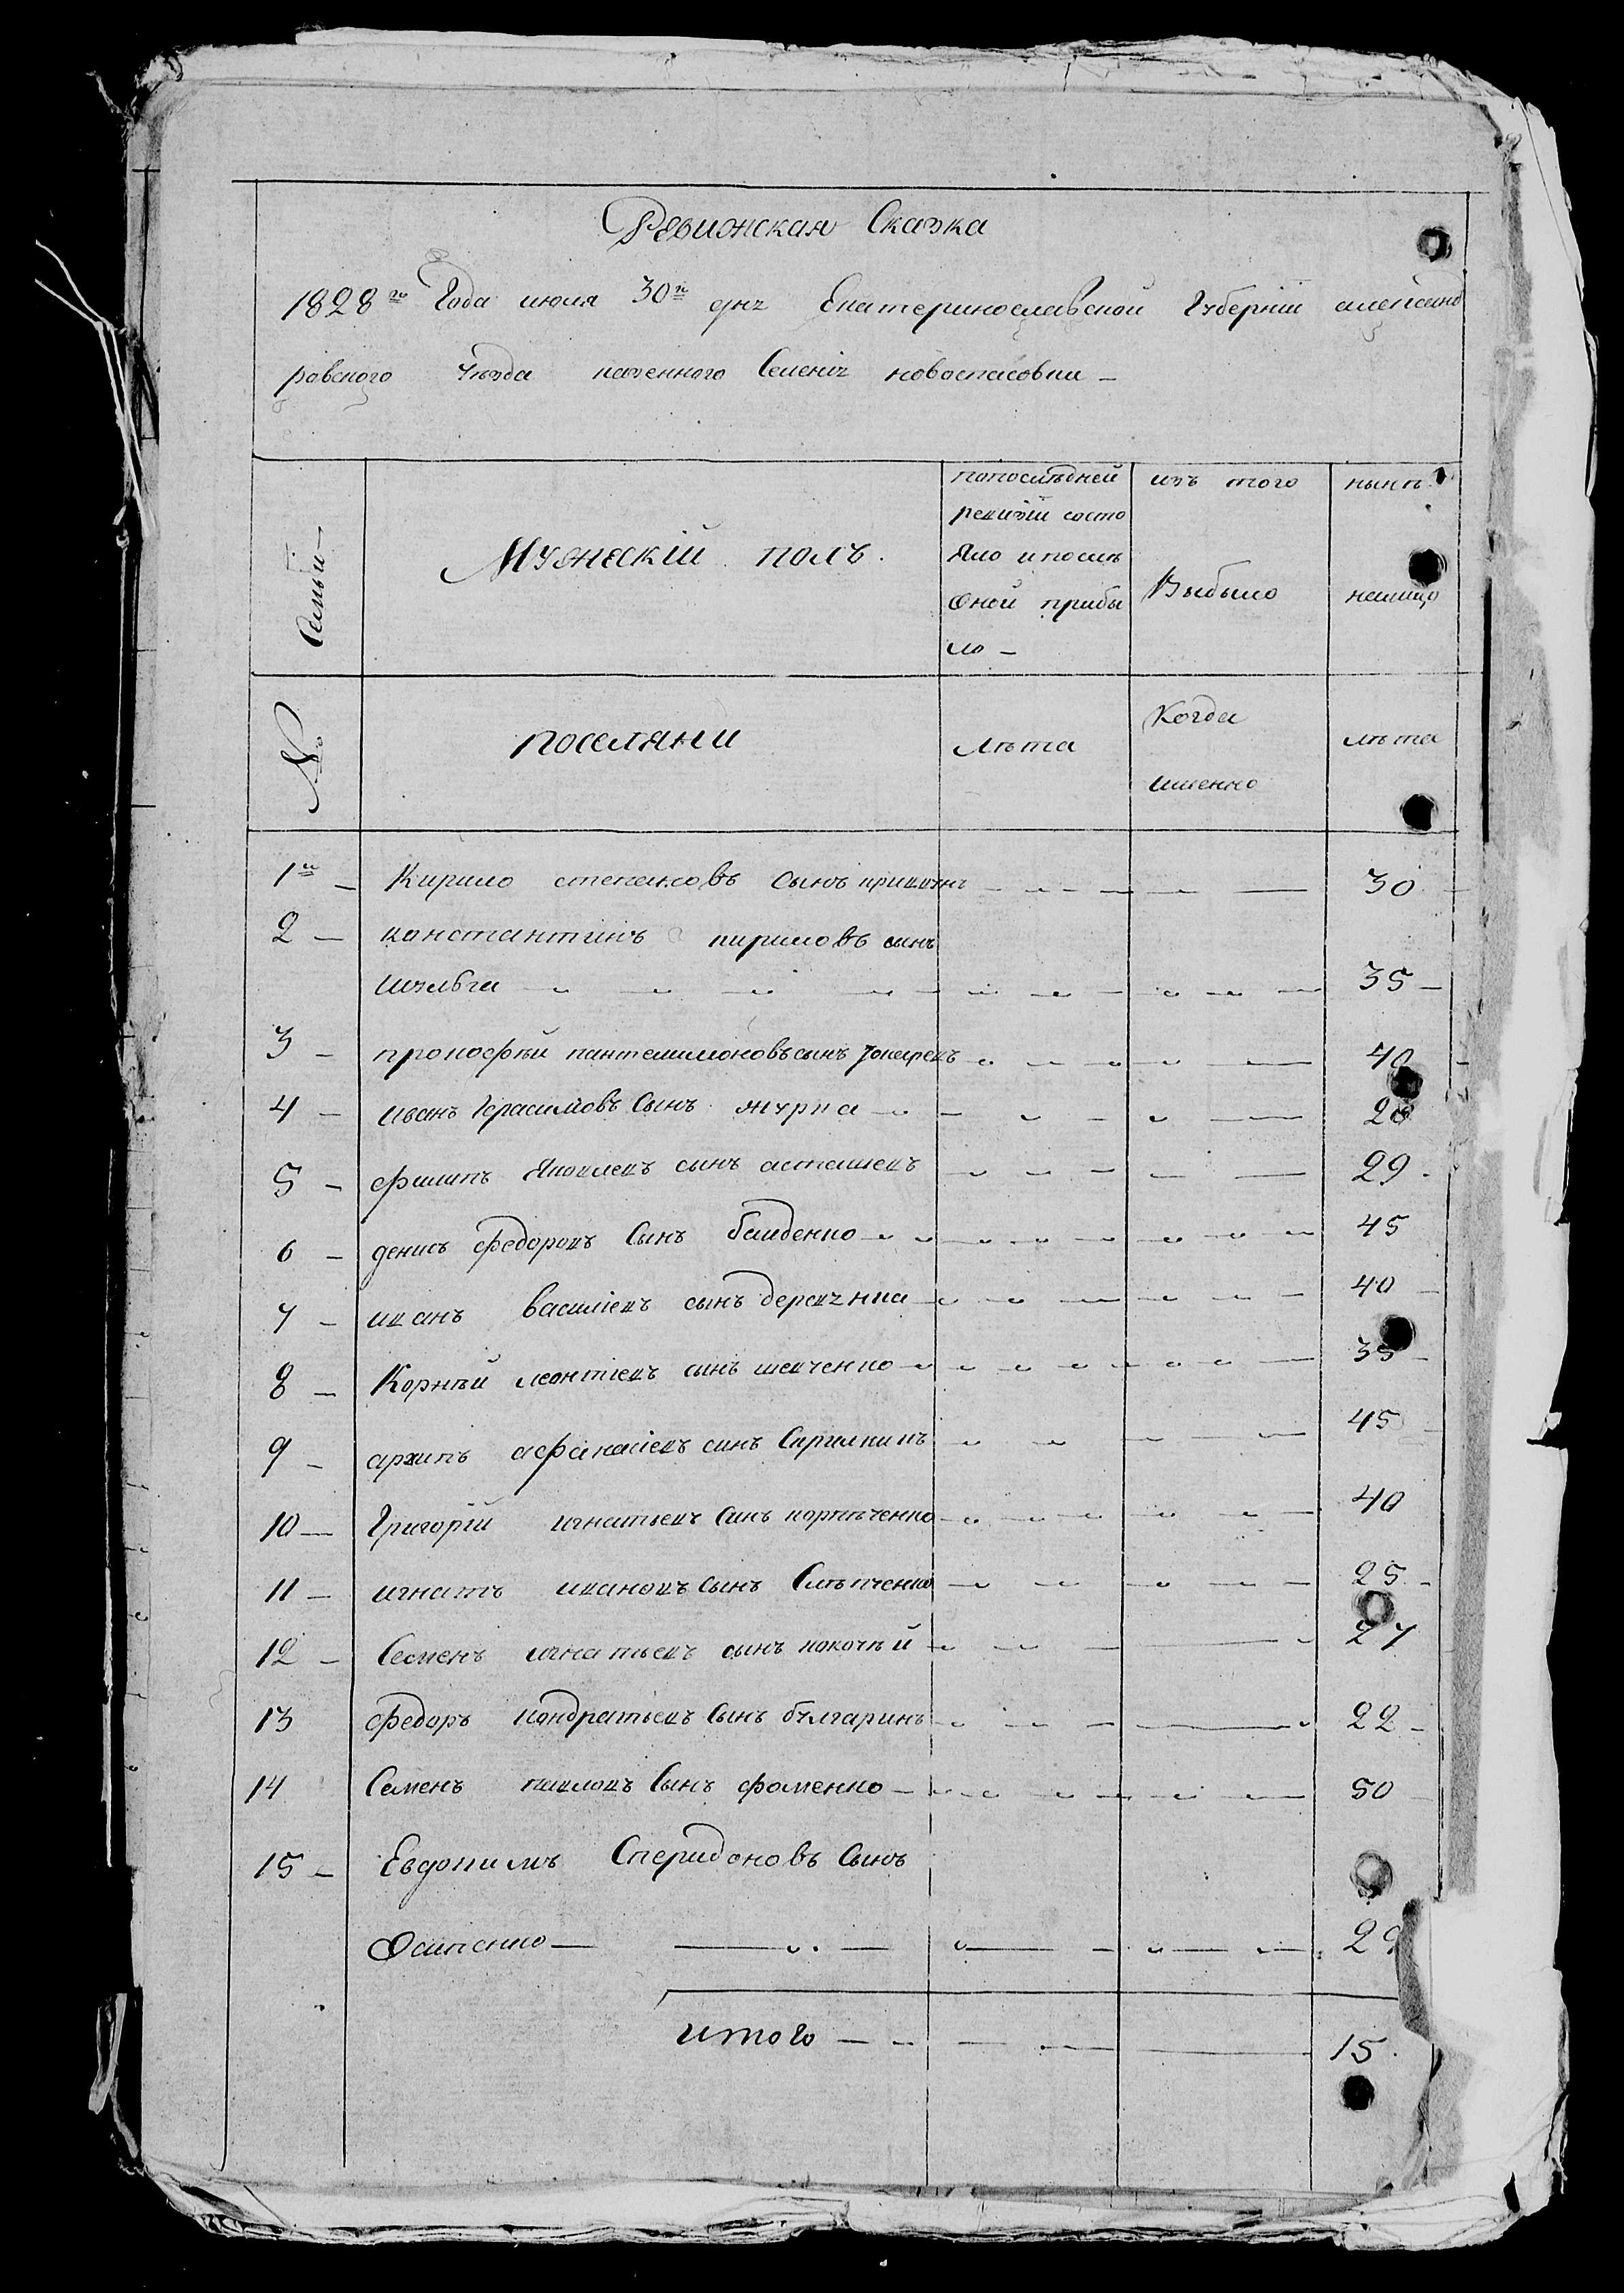 Ревижская Сказка
1828го Года июля 30го дня Екатеринославской Губерніи александ
ровского уѣзда казенного Селенія новоспасовки —
Семьи — Мужескій полъ. попослѣдней ревизіи состо яло и послѣ оной прибы ло — изъ того Выбыло нынѣ налицо
№ поселяни лѣта Когда имянно лѣта
1й — Кирило степановъ Сынъ 30
2 — константинъ кириловъ сынъ
шульга 35 —
3 — прокофѣй пантелимоновъ сынъ 40
4 — иванъ Герасимовъ Сынъ журка
5 — филипъ Яковлевъ сынъ асташевъ 29
6 — денисъ федоровъ Сынъ баиденко 45
7 — иванъ василіевъ сынъ деревянка 40
8 — Корнѣй леонтіевъ синъ шевченко 35
9 — архипъ афанасіевъ синъ Скрипникъ 45
10 — Григорій игнатьевъ Синъ корпѣченко 40
11 — игнатъ ивановъ Сынъ Слѣпченко 25
12 — Семенъ игнатьевъ сынъ кокочѣй 27
13 федоръ кондратьевъ Сынъ булгаринъ 22 —
14 Семенъ павловъ Сынъ фоменко 50
15 — Евдокимъ Спиридоновъ Сынъ
Осипенко — 29
итого — 15.